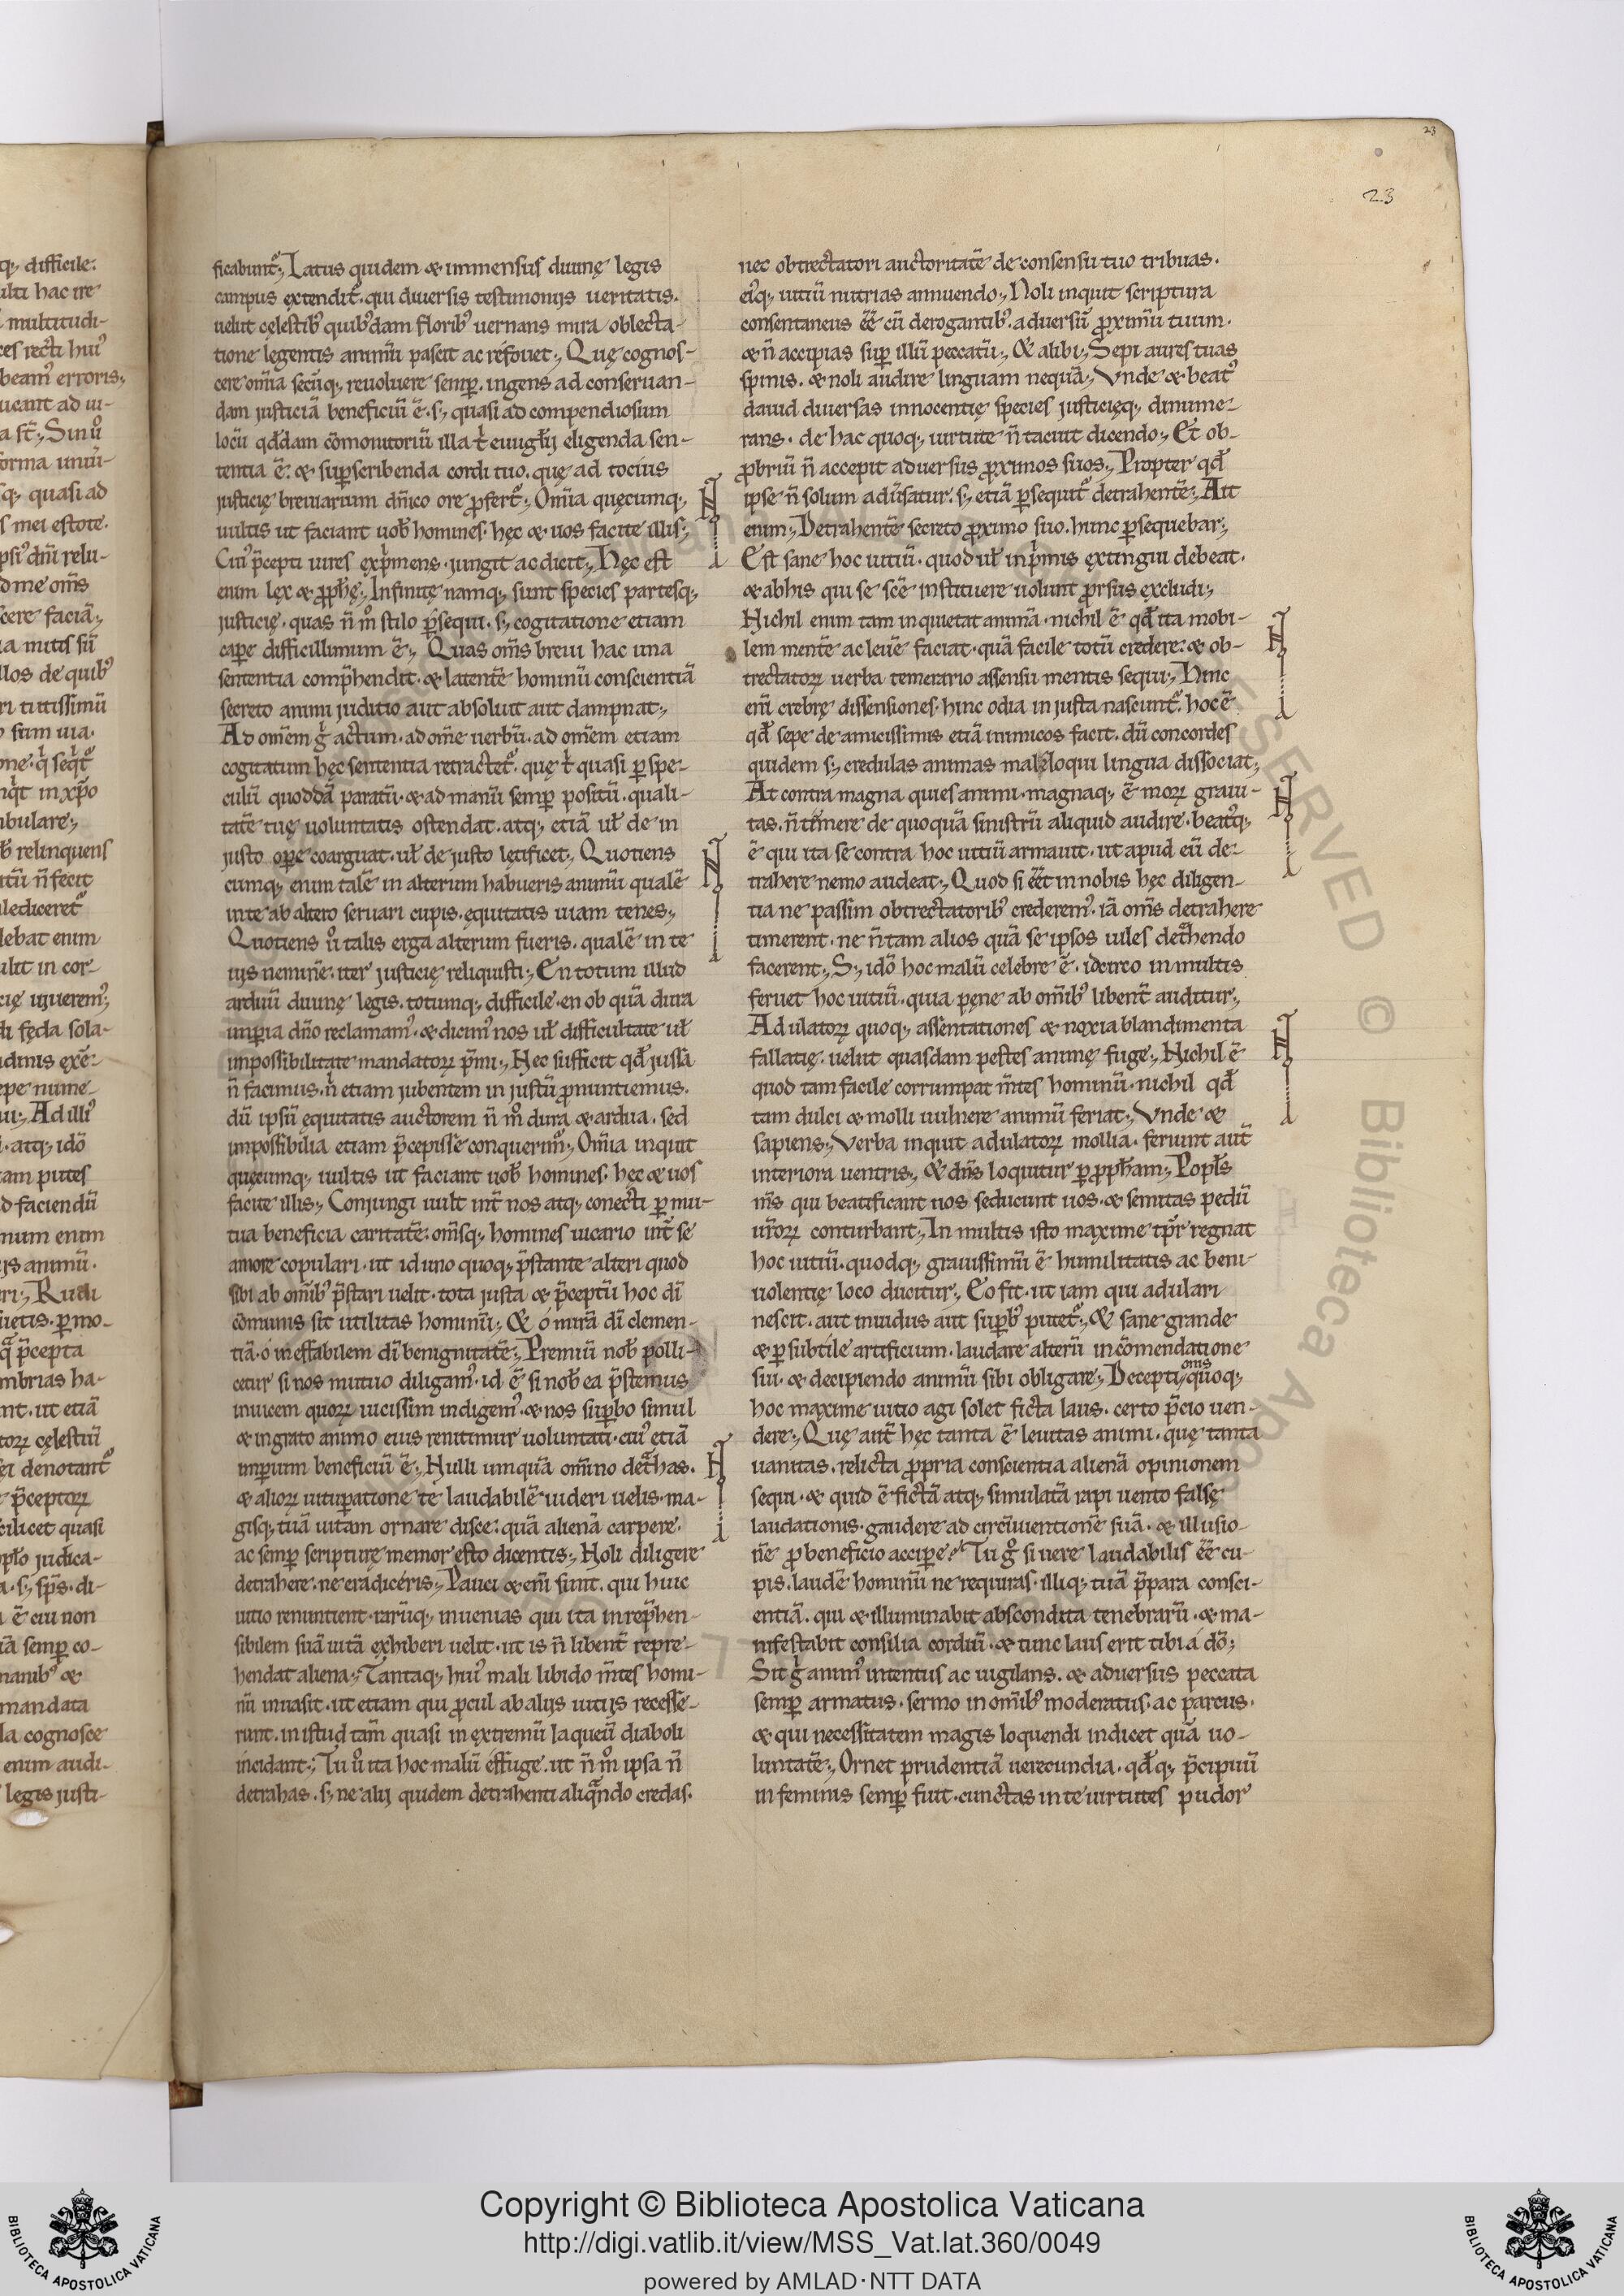 23
23
ficabunt᷒. Latus quidem & immensus diuinę legis
campus extendit᷒. qui diuersis testimonijs ueritatis.
uelut cęlestib; quib;dam florib; uernans mira oblecta-
tione legentis animū pascit ac refouet. Quę cognos-
cere om̄ia secūq; reuoluere semp̱. ingens ad conseruan-
dam justiciā beneficiū ē. s; quasi ad compendiosum
locū qđdam cōmonitoriū illa t̾ euuglij eligenda sen-
tentia ē. & sup̱scribenda cordi tuo. quę ad tocius
justicię breuiarium dn̄ico ore ꝓfert᷒. Om̄ia quęcumq;
uultis ut faciant uob̄ homines. hęc & uos facite illis.
Cui᷒ p̄cepti uires exp̾mens. jungit ac dicit. Hęc est
enim lex & ꝓph̄ę. Infinitę namq; sunt species partesq;
justicię. quas n̄ m̊ stilo p̱sequi. s; cogitatione etiam
cap̱e difficillimum ē. Quas om̄s breui hac una
sententia comp̄hendit. & latentē hominū conscientiā
secreto animi juditio aut absoluit aut dampnat.
Ad om̄em g̾ actum. ad om̄e uerbū. ad om̄em etiam
cogitatum hęc sententia retractet᷒. quę t̾ quasi p̱ spe-
culū quoddā paratū. & ad manū semp̱ positū. quali-
tatē tuę uoluntatis ostendat. atq; etiā uł de in
justo op̱e coarguat. uł de justo lętificet. Quotiens
cumq; enim talē in alterum habueris animū qualē
in te ab altero seruari cupis. ęquitatis uiam tenes.
Quotiens ů talis erga alterum fueris. qualē in te
uis neminē. iter justicię reliquisti. En totum illud
arduū diuinę legis. totumq; difficile. en ob quā dura
imp̱ia dn̄o reclamam᷒. & dicim᷒ nos uł difficultate uł
impossibilitate mandatoꝝ p̄mi. Nec sufficit qđ jussā
n̄ facimus. n̄ etiam jubentem in justū ꝓnuntiemus.
dū ipsū ęquitatis auctorem n̄ m̊ dura & ardua. sed
impossibilia etiam p̄cepisse conquerim᷒. Om̄ia inquit
quęcumq; uultis ut faciant uob̄ homines. hęc & uos
facite illis. Conjungi uult int̄ nos atq; conecti p̱ mu-
tua beneficia caritatē. om̄sq; homines uicario int̄ se
amore copulari. ut id uno quoq; p̄stante alteri quod
sibi ab om̄ib; p̄stari uelit. tota justa & p̄ceptū hoc dī
cōmunis sit utilitas hominū. & o mirā dī clemen-
tiā. o ineffabilem dī benignitatē. Premiū nob̄ polli-
cetur si nos mutuo diligam᷒. id ē si nob̄ ea p̄stemus
inuicem quoꝝ uicissim indigem᷒. & nos sup̱bo simul
& ingrato animo eius renitimur uoluntati. cui᷒ etiā
imp̱ium beneficiū ē. Nulli umquā om̄ino det̾has.
& alioꝝ uitup̱atione te laudabilē uideri uelis. ma-
gisq; tuā uitam ornare disce. quā alienā carpere.
ac semp̱ scripturę memor esto dicentis. Noli diligere
detrahere. ne eradiceris. Pauci & em̄ sunt. qui huic
uitio renuntient. rarūq; inuenias qui ita inrep̄hen-
sibilem suā uitā exhiberi uelit. ut is n̄ libent̄ repre-
hendat aliena. Tantaq; hui᷒ mali libido m̄tes homi-
nū inuasit. ut etiam qui ꝓcul ab alijs uitijs recesse-
runt. in istud tam̄ quasi in extremū laqueū diaboli
incidant. Tu ů ita hoc malū effuge. ut n̄ m̊ ipsa n̄
detrahas. s; ne alij quidem detrahenti aliqᷓndo credas.
nec obtrectatori auctoritatē de consensu tuo tribuas.
ei᷒q; uitiū nutrias annuendo. Noli inquit scriptura
consentaneus ēē cū derogantib;. aduersū ꝓximū tuum.
& n̄ accipias sup̱ illū peccatū. & alibi. Sepi aures tuas
spinis. & noli audire linguam nequā. Vnde & beat᷒
dauid diuersas innocentię species justicięq; dinume-
rans. de hac quoq; uirtute n̄ tacuit dicendo. Et ob-
ꝓbriū n̄ accepit aduersus ꝓximos suos. Propter qđ
ipse n̄ solum adūsatur. s; etiā p̱sequit᷒ detrahentē. Ait
enim. Detrahentē secreto ꝓximo suo. hunc p̱sequebar.
Est sane hoc uitiū. quod uł inp̾mis extingui debeat.
& abhis qui se sc̄e instituere uolunt ꝓrsus excludi.
Nichil enim tam inquietat animā. nichil ē qđ ita mobi-
lem mentē ac leuē faciat. quā facile totū credere. & ob-
trectatoꝝ uerba temerario assensu mentis sequi. Hinc
em̄ crebrę dissensiones. hinc odia in justa nascunt᷒. hoc ē
qđ sepe de amicissimis etiā inimicos facit. dū concordes
quidem s; credulas animas maleloqui lingua dissociat.
At contra magna quies animi. magnaq; ē moꝝ graui-
tas. n̄ temere de quoquā sinistrū aliquid audire. beat᷒q;
ē qui ita se contra hoc uitiū armauit. ut apud eū de-
trahere nemo audeat. Quod si ēēt in nobis hęc diligen-
tia ne passim obtrectatorib; crederem᷒. iā om̄s detrahere
timerent. ne n̄ tam alios quā se ipsos uiles det̾hendo
facerent. S; idō hoc malū celebre ē. idcirco in multis
feruet hoc uitiū. quia pęne ab om̄ib; libent̄ auditur.
Adulatoꝝ quoq; assentationes & noxia blandimenta
fallatię. uelut quasdam pestes animę fuge. Nichil ē
quod tam facile corrumpat m̄tes hominū. nichil qđ
tam dulci & molli uulnere animū feriat. Vnde &
sapiens. Verba inquit adulatoꝝ mollia. feriunt aut̄
interiora uentris. & dn̄s loquitur p̱ ꝓph̄am. Popl̄s
m̄s qui beatificant uos seducunt uos. & semitas pedū
ur̄oꝝ conturbant. In multis isto maxime tp̄r regnat
hoc uitiū. quodq; grauissimū ē humilitatis ac beni-
uolentię loco ducitur. Eo fit. ut iam qui adulari
nescit. aut inuidus aut sup̱b᷒ putet᷒. & sane grande
& p̱ subtile artificium. laudare alterū in cōmendatione
sui. & decipiendo animū sibi obligare. Decepti om̄s quoq;
hoc maxime uitio agi solet ficta laus. certo p̄cio uen-
dere. Quę aut̄ hęc tanta ē leuitas animi. quę tanta
uanitas. relicta ꝓpria conscientia alienā opinionem
sequi. & quid ē fictā atq; simulatā rapi uento falsę
laudationis. gaudere ad circūuentionē suā. & illusio-
nē ꝓ beneficio accipe? Tu g̊ si uere laudabilis ēē cu-
pis. laudē hominū ne requiras. illiq; tuā p̄para consci-
entiā. qui & illuminabit abscondita tenebrarū. & ma-
nifestabit consilia cordiū. & tunc laus erit tibi a dō;
Sit g̾ anim᷒ intentus ac uigilans. & aduersus peccata
semp̱ armatus. sermo in om̄ib; moderatus. ac parcus.
& qui necessitatem magis loquendi indicet quā uo-
luntatē. Ornet prudentiā uerecundia. qđq; p̄cipuū
in feminis semp̱ fuit. cunctas in te uirtutes pudor
Copyright © Biblioteca Apostolica Vaticana
http://digi.vatlib.it/view/MSS_Vat.lat.360/0049
powered by AMLAD·NTT DATA
BIBLIOTECA APOSTOLICA VATICANA
BIBLIOTECA APOSTOLICA VATICANA